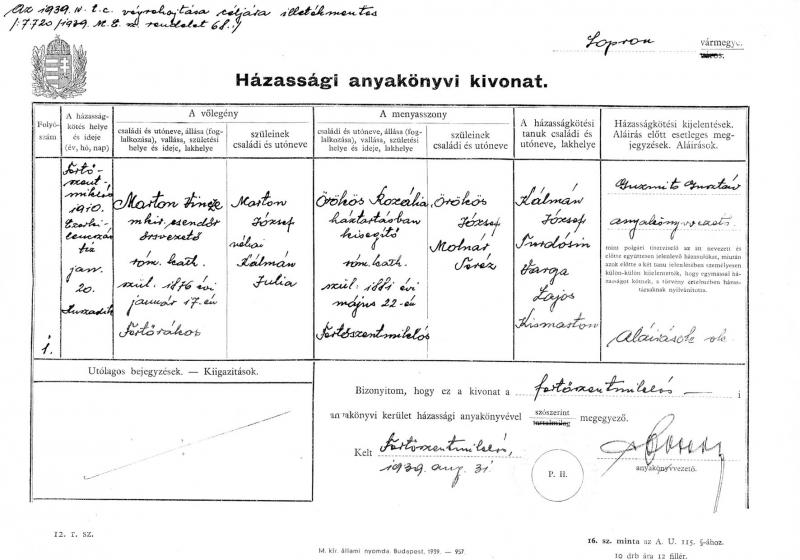 Az 1939. IV. t.c. végrehajtása céljára illetékmentes
/:7.720/1939. M.E. sz. rendelet 6§./
Sopron vármegye
város.
Házassági anyakönyvi kivonat.
Folyó-
szám
A házasság-
kötés helye
és ideje
(év, hó, nap)
A vőlegény
családi és utóneve, állása (fog-
lalkozása), vallása, születési
helye és ideje, lakhelye
szüleinek
családi és utóneve
A menyasszony
családi és utóneve, állása (fog-
lalkozása), vallása, születési
helye és ideje, lakhelye
szüleinek
családi és utóneve
A házasságkötési
tanuk családi és
utóneve, lakhelye
Házasságkötési kijelentések.
Aláírás előtt esetleges meg-
jegyzések. Aláírások.
1.
Fertő-
szent-
miklós
1910.
Ezerki-
lencszáz
tíz
jan.
20.
huszadik
Marton Vincze
csendőr
őrsvezető
róm. kath.
szül: 1876 évi
január 17-én
Fertőrákos
Marton
József
néhai
Kálmán
Julia
Örökös Rozália
háztartásban
kisegítő
róm. kath.
szül: 1881 évi
május 22-én
Fertőszentmiklós
Örökös
József
Molnár
Teréz
Kálmán
József
Varga
Lajos
Kismarton
Gusztáv
anyakönyvvezető
mint polgári tisztviselő az itt nevezett és
előtte egyttesen jelenlevő házasulókat, miután
azok előtte a két tanu jelenlétében személyesen
külön-külön kijelentették, hogy egymással há-
zasságot kötnek, a törvény értelmében házas-
társaknak nyilvánította.
Aláírások
Utólagos bejegyzések. — Kiigazitások.
Bizonyitom, hogy ez a kivonat a fertőszentmiklós — i
anyakönyvi kerület házassági anyakönyvével szószerint megegyező.
tartalmilag
Kelt Fertőszentmiklós,
1939. aug. 31
P. H.
anyakönyvvezető.
12. r. sz.
M. kir. állami nyomda. Budapest, 1939. — 957.
16. sz. minta az A. U. 115. §-ához.
10 drb ára 12 fillér.